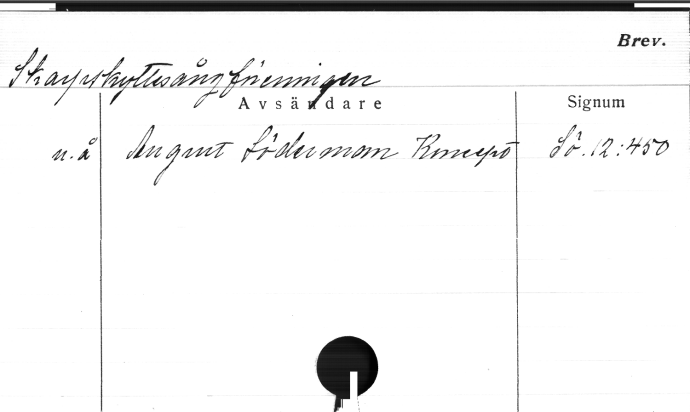 Brev.
Skarpskyttesångföreningen
Avsändare Signum
u.å August Söderman Koncept Sö.12:450